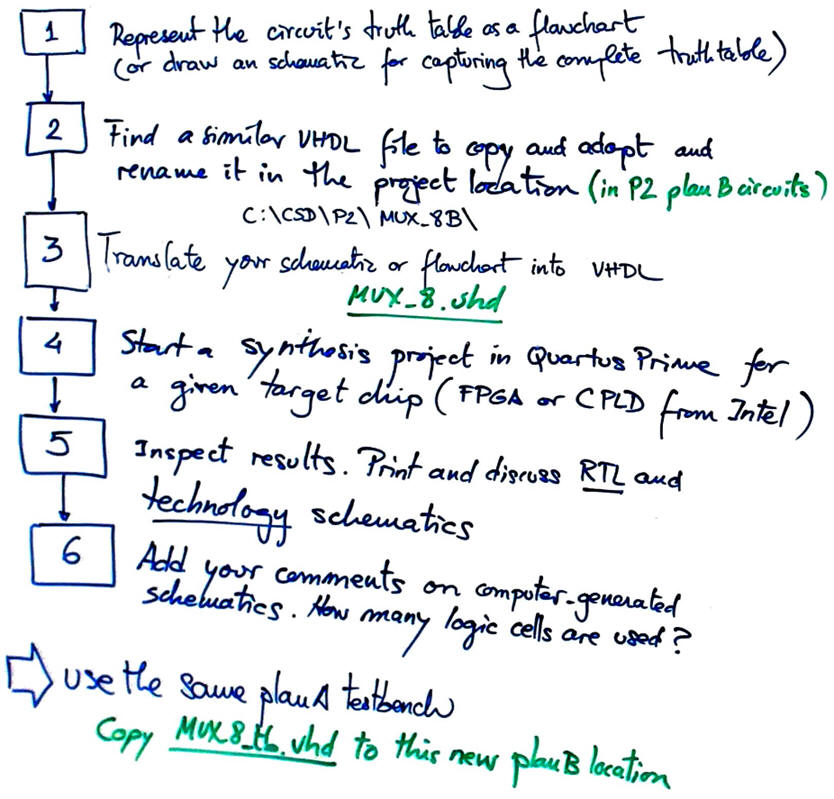 1 Represent the circuit's truth table as a flowchart
(or draw an schematic for capturing the complete truth table)
2 Find a similar VHDL file to copy and adapt and
rename it in the project location (in P2 plan B circuits)
C:\CSD\P2\MUX_8B\
3 Translate your schematic or flowchart into VHDL
MUX_8.vhd
4 Start a synthesis project in Quartus Prime for
a given target chip (FPGA or CPLD from Intel)
5 Inspect results. Print and discuss RTL and
technology schematics
6 Add your comments on computer-generated
schematics. How many logic cells are used?
use the same plan A testbench
Copy MUX8_tb.vhd to this new plan B location